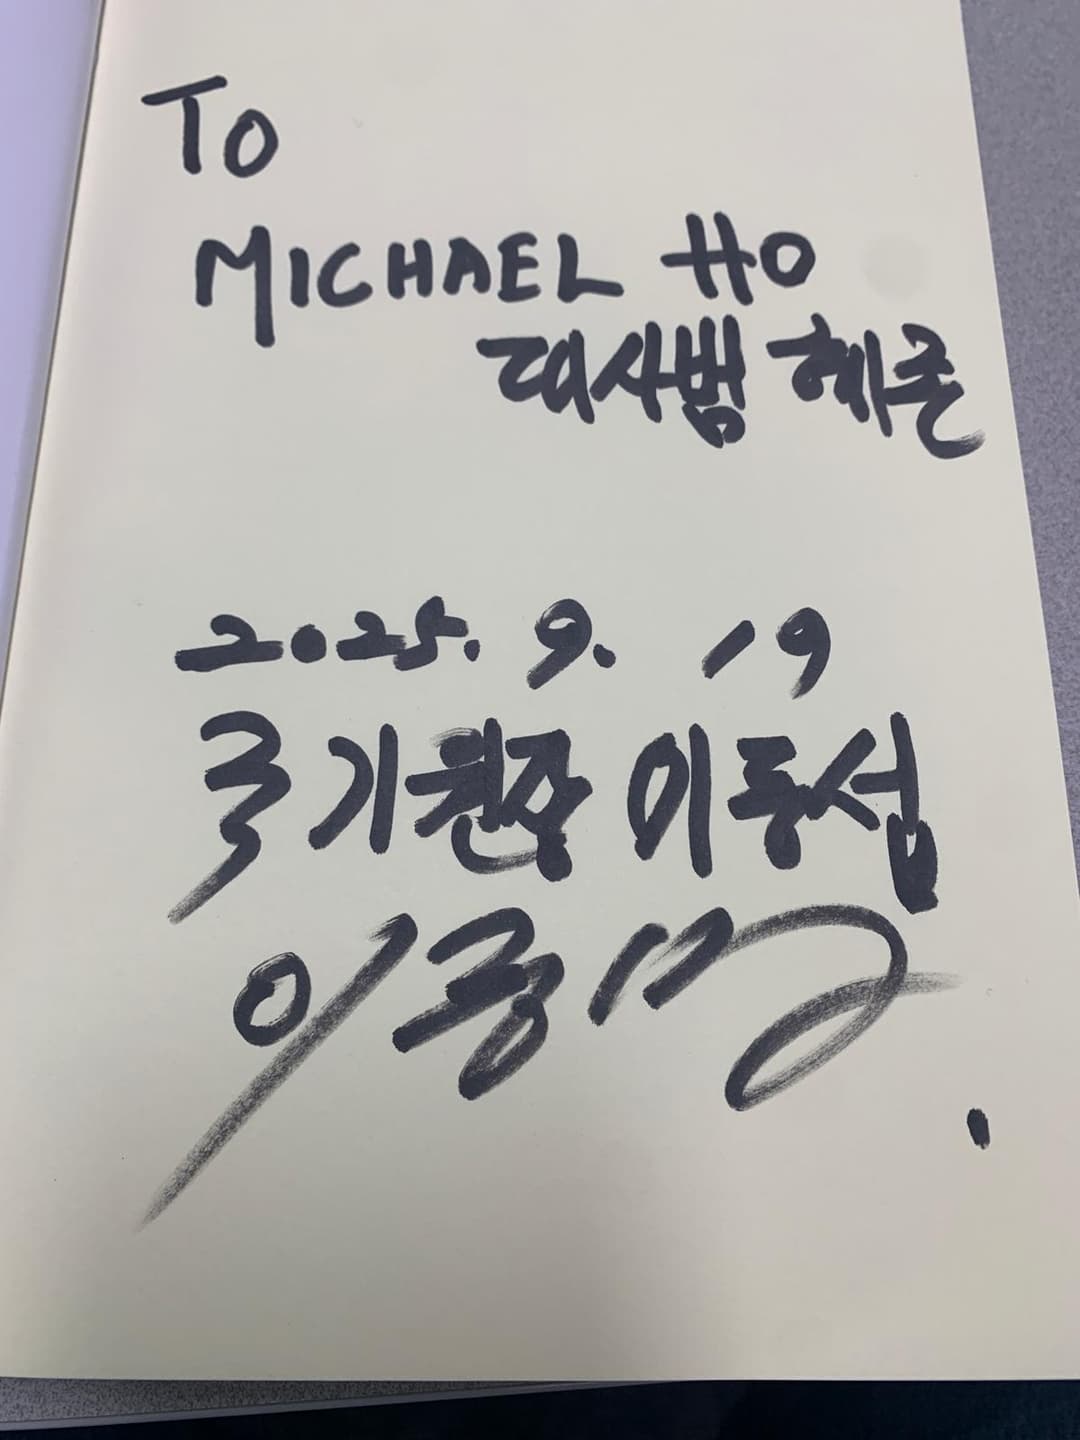 To
MICHAEL HO
대사범 혜존
2025. 9. 19
국기원장 이동섭
이동섭